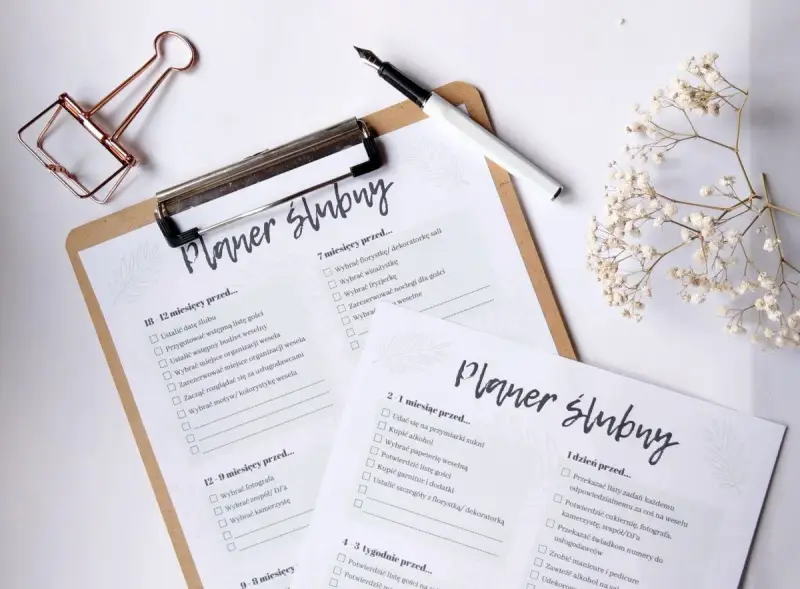 Planer ślubny
18 - 12 miesięcy przed...
Ustalić datę ślubu
Przygotować wstępną listę gości
Ustalić wstępny budżet weselny
Wybrać miejsce organizacji wesela
Zarezerwować miejsce organizacji wesela
Zacząć rozglądać się za usługodawcami
Wybrać motyw/ kolorystykę wesela
12 - 9 miesięcy przed...
Wybrać fotografa
Wybrać zespół/ DJ'a
Wybrać kamerzystę
9 - 8 miesięcy
7 miesięcy przed...
Wybrać florystkę/ dekoratorkę sali
Wybrać wizażystkę
Wybrać fryzjerkę
Zarezerwować noclegi dla gości
Wybrać weselne
Planer ślubny
2 - 1 miesiąc przed...
Udać się na przymiarki sukni
Kupić alkohol
Wybrać papeterię weselną
Potwierdzić listę gości
Kupić garnitur i dodatki
Ustalić szczegóły z florystką/ dekoratorką
4 - 3 tygodnie przed...
Potwierdzić listę gości na
Potwierdzić menu
1 dzień przed...
Przekazać listy zadań każdemu
odpowiedzialnemu za coś na weselu
Potwierdzić cukiernię, fotografa,
kamerzystę, zespół/DJ'a
Przekazać świadkom numery do
usługodawców
Zrobić manicure i pedicure
Zawieźć alkohol na